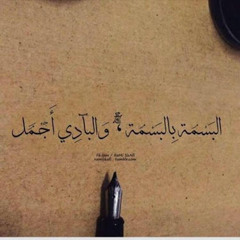 البَسْمَة بِالبَسْمَة ، وَالبَادِي أَجْمَل